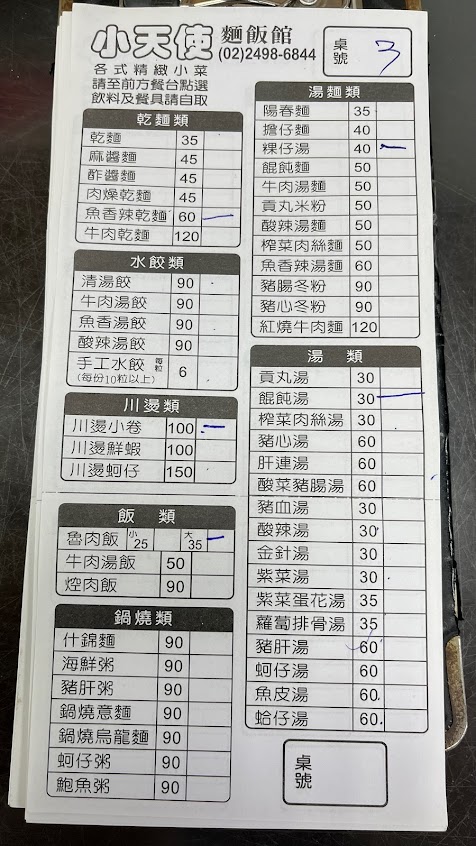 小天使 麵飯館
(02)2498-6844
各式精緻小菜
請至前方餐台點選
飲料及餐具請自取
桌號 3
乾麵類
乾麵 35
麻醬麵 45
酢醬麵 45
肉燥乾麵 45
魚香辣乾麵 60 一
牛肉乾麵 120
水餃類
清湯餃 90
牛肉湯餃 90
魚香湯餃 90
酸辣湯餃 90
手工水餃 每粒 6
(每份10粒以上)
川燙類
川燙小卷 100 一
川燙鮮蝦 100
川燙蚵仔 150
飯 類
魯肉飯 小25 大35 一
牛肉湯飯 50
焢肉飯 90
鍋燒類
什錦麵 90
海鮮粥 90
豬肝粥 90
鍋燒意麵 90
鍋燒烏龍麵 90
蚵仔粥 90
鮑魚粥 90
湯麵類
陽春麵 35
擔仔麵 40
粿仔湯 40 一
餛飩麵 50
牛肉湯麵 50
貢丸米粉 50
酸辣湯麵 50
榨菜肉絲麵 50
魚香辣湯麵 60
豬腸冬粉 90
豬心冬粉 90
紅燒牛肉麵 120
湯 類
貢丸湯 30
餛飩湯 30 一
榨菜肉絲湯 30
豬心湯 60
肝連湯 60
酸菜豬腸湯 60
豬血湯 30
酸辣湯 30
金針湯 30
紫菜湯 30
紫菜蛋花湯 35
蘿蔔排骨湯 35
豬肝湯 60
蚵仔湯 60
魚皮湯 60
蛤仔湯 60
桌號